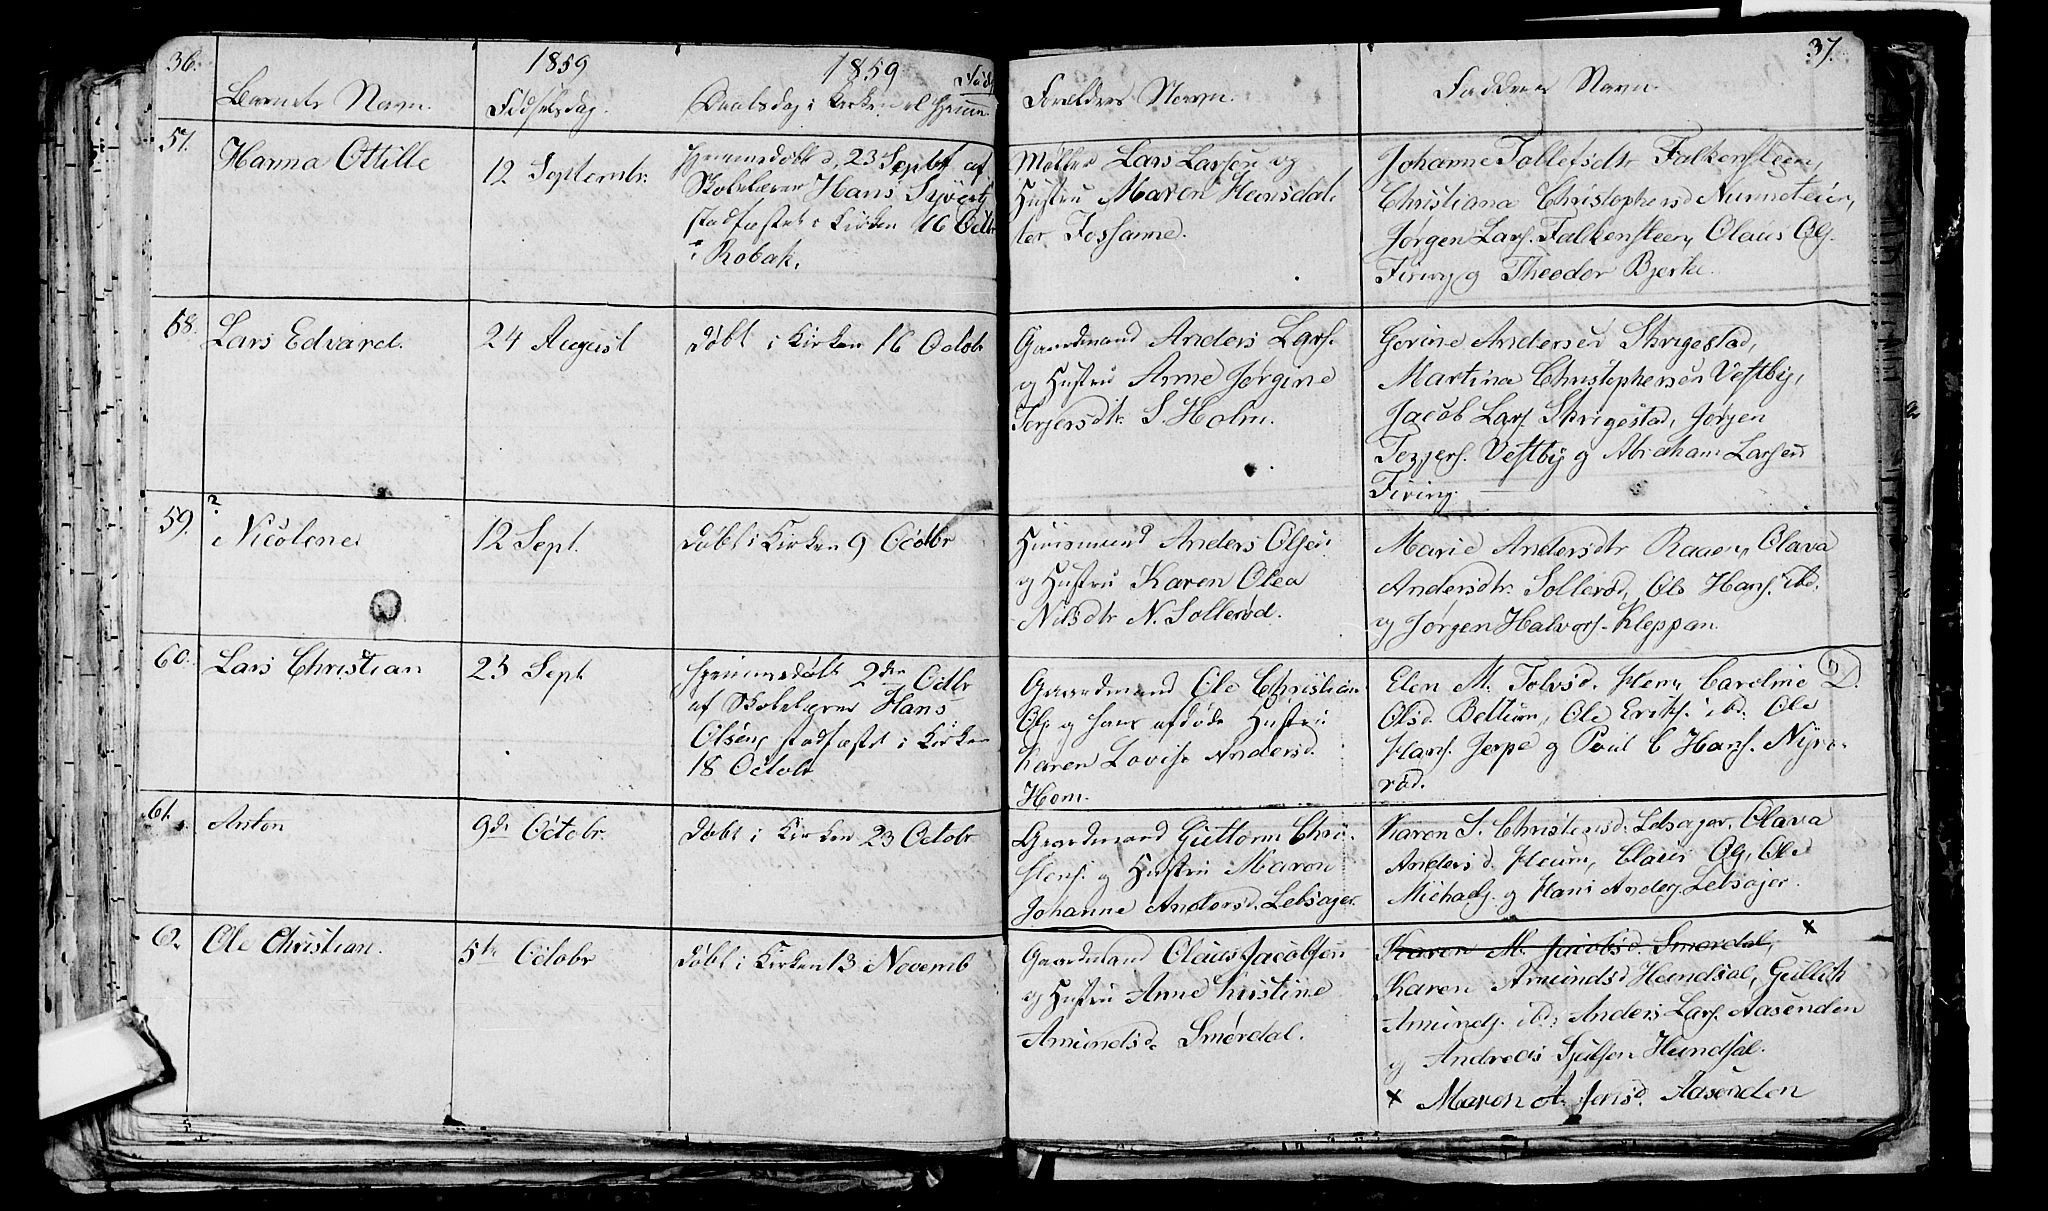 36.
1859
1859
Barnets Navn.
Fødselsdag.
Daabsdag i Kirken el Hjemme
57.
Hanna Ottille
12 Septembr.
Hjemmedøbt d. 23 Septbr af
Skolelærer Hans Syvert
stadfæstet i Kirken 16 Octbr
i Robak.
58.
Lars Edvard.
24 August
Døbt i Kirken 16 Octob
59.
Nicolene
12 Sept.
Døbt i Kirken 9 Octbr
60.
Lars Christian
25 Sept
Hjemmedøbt 2den Octbr
af Skolelærer Hans
Olsen, stadfæstet i Kirken
18 Octobr
61.
Anton
9de Octobr.
Døbt i Kirken 23 Octobr
62
Ole Christian.
5te Octobr
Døbt i Kirken 13 Novemb
37.
Forældres Navn.
Faddernes Navn.
Møller Lars Larsen og
Hustru Maren Hansdat-
ter Fossanne.
Johanne Tollefsdtr Falkensteen,
Christiana Christophersd
Jørgen Lars. Falkensteen, Olaus Ols.
Firing og Theodor Bjerke.
Gaardmand Anders Lars.
og Hustru Anne Jørgine
Terjersdtr. S. Holm.
Gorine Andersen Skrigestad,
Martina Christophersen Vestby,
Jacob Lars. Skrigestad, Jørgen
Terjers. Vestby og Abraham Larsen
Firing.
Huusmand Anders Olsen
og Hustru Karen Olea
Nilsdtr N. Sollerød.
Marie Andersdtr Raaen, Olava
Andersdtr. Sollerød, Ole Hans. ibd.
og Jørgen Halvors. Kleppan.
Gaardmand Ole Christian
Ols. og hans afdøde Hustru
Karen Lovise Andersd.
Hem.
Elen M. Tolvsd. Hem, Caroline D.
Olsd. Bettum, Ole Eriks. ibd. Ole
Hans. Jerpe og Poul C Hans. Nyrø-
rød.
Gaardmand Guttorm Chri-
stens. og Hustru Maren
Johanne Andersd. Lebsager.
Karen S. Christensd. Lebsager, Olava
Andersd. Heum, Claus Ols, Ole
Michaels. og Hans Anders. Lebsager.
Gaardmand Claus Jacobsen
og Hustru Anne Kirstine
Amundsd. Smørdal.
Karen M. Jacobsd. Smørdal, x
Karen Amundsd Hundsal, Gullich
Amunds. ibd, Anders Lars. Aasenden
og Andreas Hundsal.
x Maren A. Jensd. Aasenden